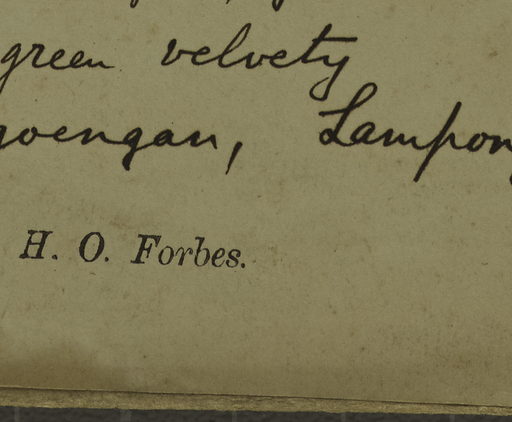 green velvety
goengan, Lampong
H. O. Forbes.